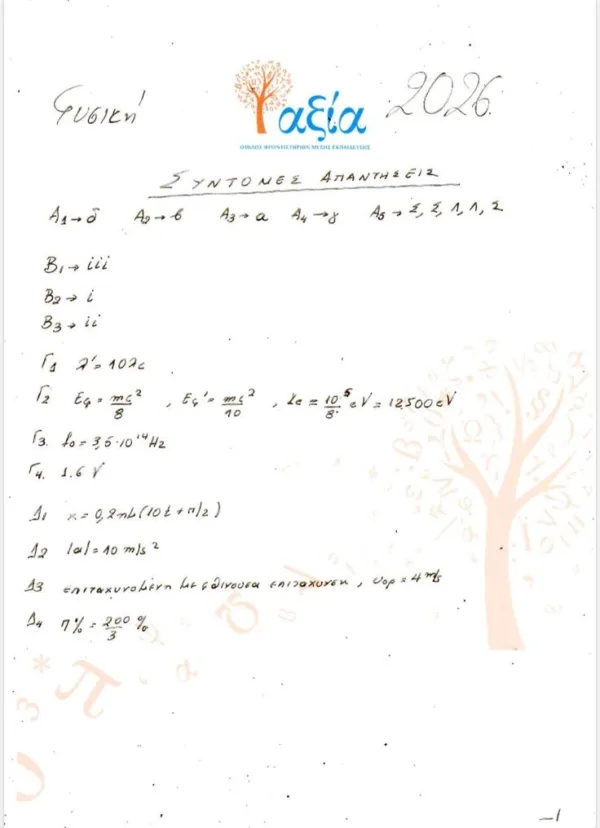 Φυσική
αξία
2026
ΟΜΙΛΟΣ ΦΡΟΝΤΙΣΤΗΡΙΩΝ ΜΕΣΗΣ ΕΚΠΑΙΔΕΥΣΗΣ
ΣΥΝΤΟΜΕΣ ΑΠΑΝΤΗΣΕΙΣ
A1→δ A2→β A3→α A4→γ A5→Σ, Σ, Λ, Λ, Σ
B1→iii
B2→i
B3→ii
Γ1 λ'=10λc
Γ2 Eφ=mc²/8 , Eφ'=mc²/10 , Ke=10⁵/8 eV=12.500eV
Γ3. fo=3,5·10¹⁴Hz
Γ4. 1.6 V
Δ1 x=0,2ημ(10t+π/2)
Δ2 |a|=10 m/s²
Δ3 επιταχυνόμενη με φθίνουσα επιτάχυνση, υορ=4m/s
Δ4 π%=200/3 %
-1